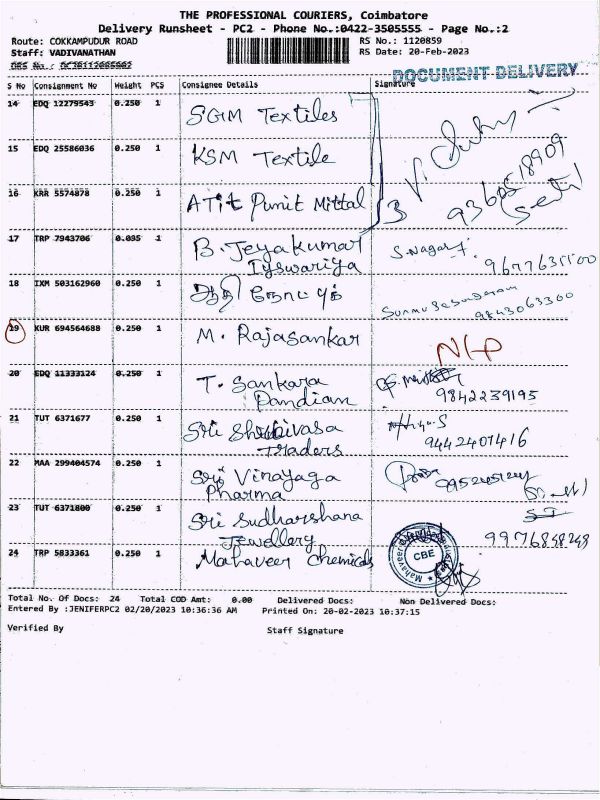 THE PROFESSIONAL COURIERS, Coimbatore
Delivery Runsheet - PC2 - Phone No.:0422-3505555 - Page No.:2
Route: COKKAMPUDUR ROAD
RS No.: 1120859
Staff: VADIVANATHAN
RS Date: 20-Feb-2023
DOCUMENT DELIVERY
S No Consignment No Weight PCS Consignee Details Signature
14 EDQ 12279543 0.250 1 SGM Textiles
15 EDQ 25586036 0.250 1 KSM Textile
16 KRR 5574878 0.250 1 ATit Punit Mittal
9360518909
Seal
17 TRP 7943706 0.035 1 B. Jeyakumar
Iyswariya
9677635100
18 IXM 503162960 0.250 1
9843063300
19 KUR 694564688 0.250 1 M. Rajasankar
20 EDQ 11333124 0.250 1 T. Sankara
Pandiam 9842239195
21 TUT 6371677 0.250 1 Sri
Traders 9442407416
22 MAA 299404574 0.250 1 Sri Vinayaga
Pharma
23 TUT 6371800 0.250 1 Sri Sudharshana
Jewellery 9976848248
24 TRP 5833361 0.250 1 Mahaveer Chemicals
CBE
Total No. Of Docs: 24 Total COD Amt: 0.00 Delivered Docs: Non Delivered Docs:
Entered By :JENIFERPC2 02/20/2023 10:36:36 AM Printed On: 20-02-2023 10:37:15
Verified By Staff Signature